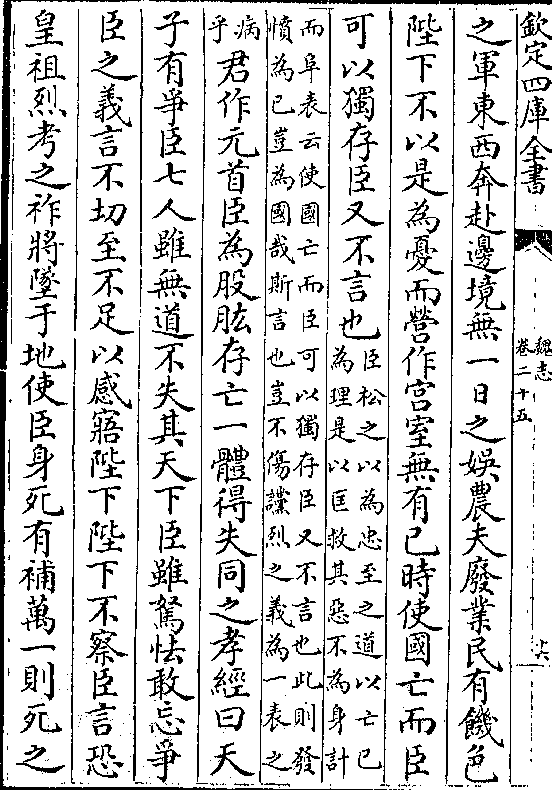 欽定四庫全書
魏志
卷二十五
十六
之軍東西奔赴邊境無一日之娯農夫廢業民有饑色
陛下不以是為憂而營作宫室無有已時使國亡而臣
可以獨存臣又不言也
臣松之以為忠至之道以亡已
為理是以匡救其惡不為身計
而阜表云使國亡而臣可以獨存臣又不言也此則發
憤為已豈為國哉斯言也豈不傷讜烈之義為一表之
病
乎
君作元首臣為股肱存亡一體得失同之孝經曰天
子有爭臣七人雖無道不失其天下臣雖駑怯敢忘爭
臣之義言不切至不足以感寤陛下陛下不察臣言恐
皇祖烈考之祚將墜于地使臣身死有補萬一則死之